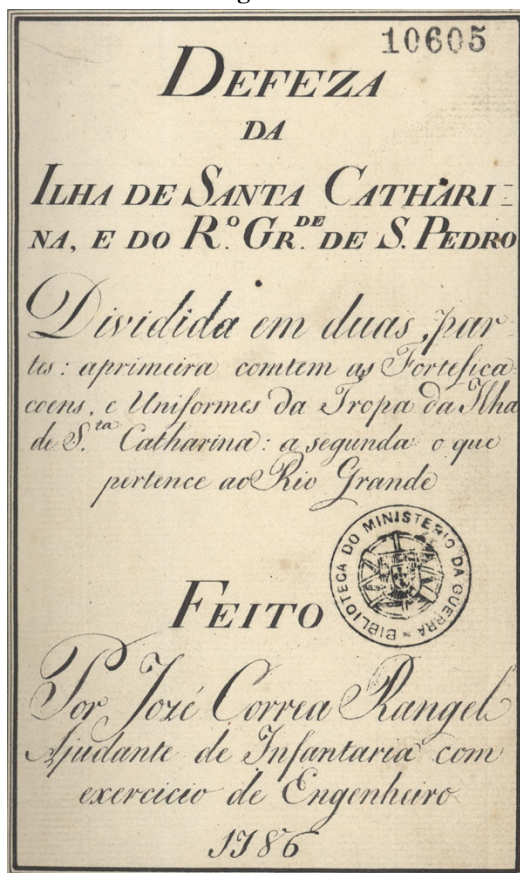 10605
DEFEZA
DA
ILHA DE SANTA CATHARI-
NA, E DO R.º GR.DE DE S. PEDRO
Dividida em duas par-
tes: aprimeira comtem as Fortefica-
coens, e Uniformes da Tropa da Ilha
de S.ta Catharina: a segunda o que
pertence ao Rio Grande
BIBLIOTECA DO MINISTERIO DA GUERRA
FEITO
Por Jozé Correa Rangel
Ajudante de Infantaria com
exercicio de Engenheiro
1786